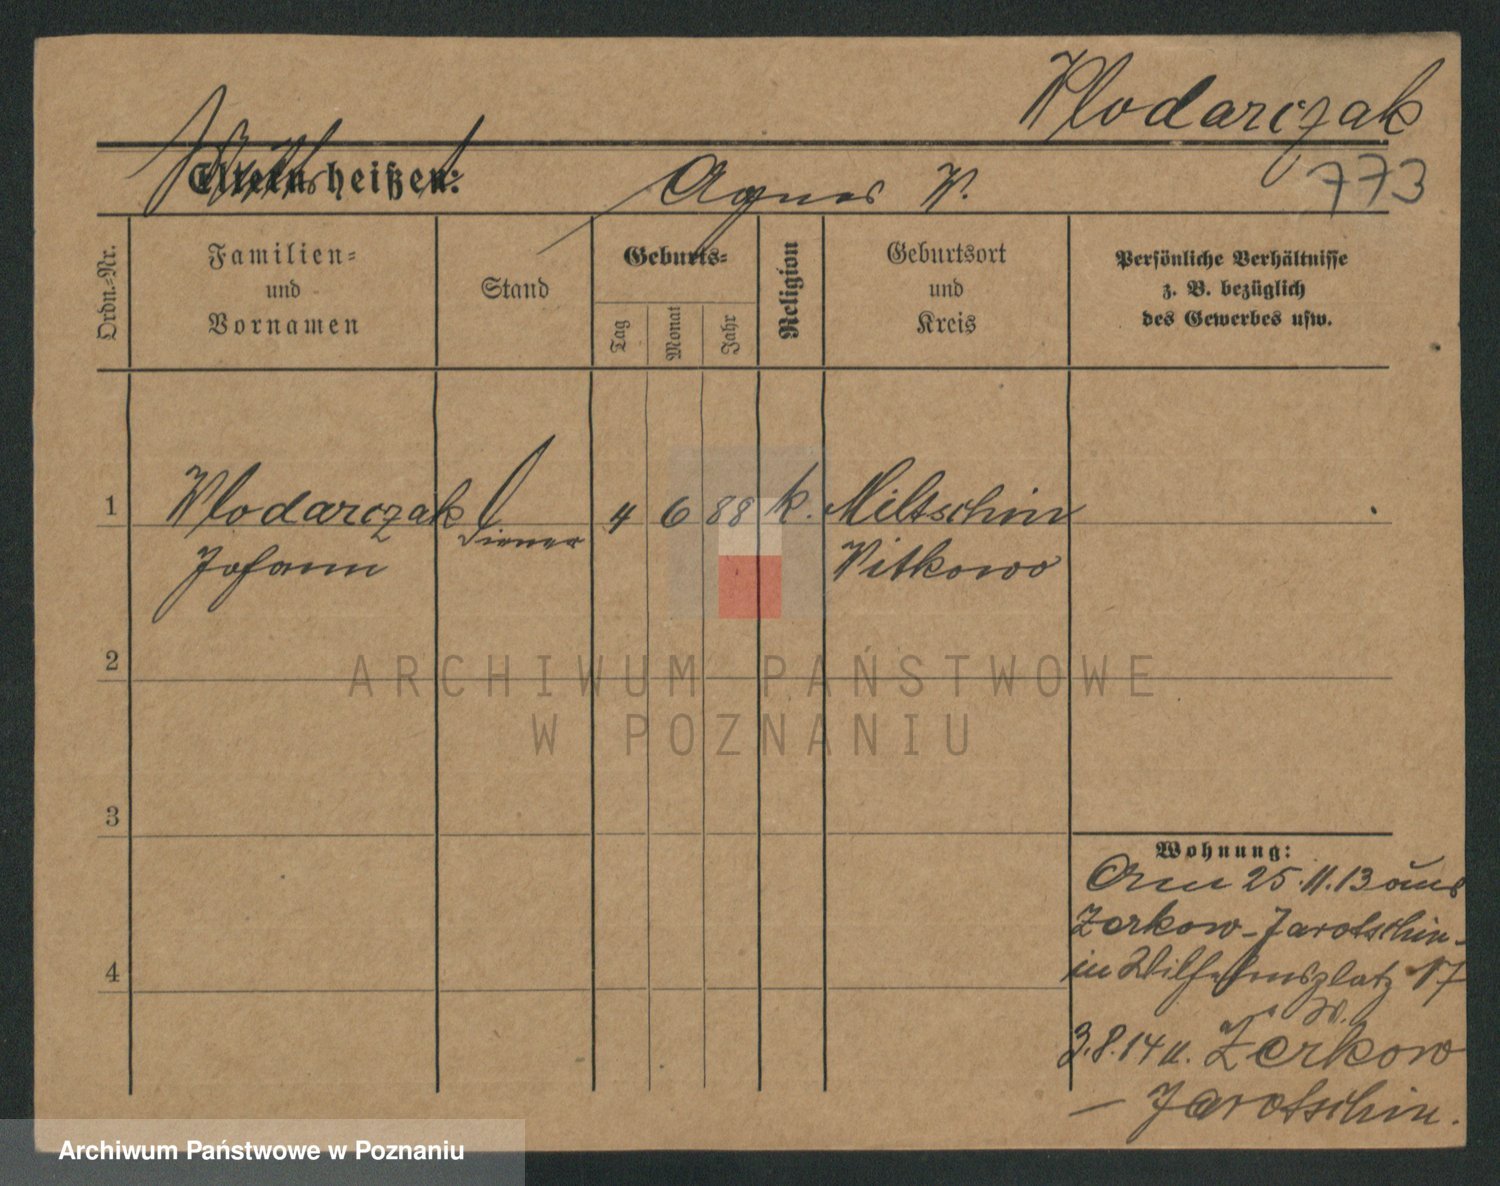 Wlodarczak
Eltern heißen:
Agnes W.
773
Ordn.-Nr.
Familien-
und
Vornamen
Stand
Geburts-
Tag
Monat
Jahr
Religion
Geburtsort
und
Kreis
Persönliche Verhältnisse
z. B. bezüglich
des Gewerbes usw.
1
Wlodarczak
Johann
Diener
4 6 88 k.
Miltschin
Witkowo
2
3
4
ARCHIWUM PAŃSTWOWE
W POZNANIU
Wohnung:
Am 25.11.13 aus
Zerkow-Jarotschin-
in Wilhelmsplatz 17
W.
3.8.14 n. Zerkow
- Jarotschin.
Archiwum Państwowe w Poznaniu